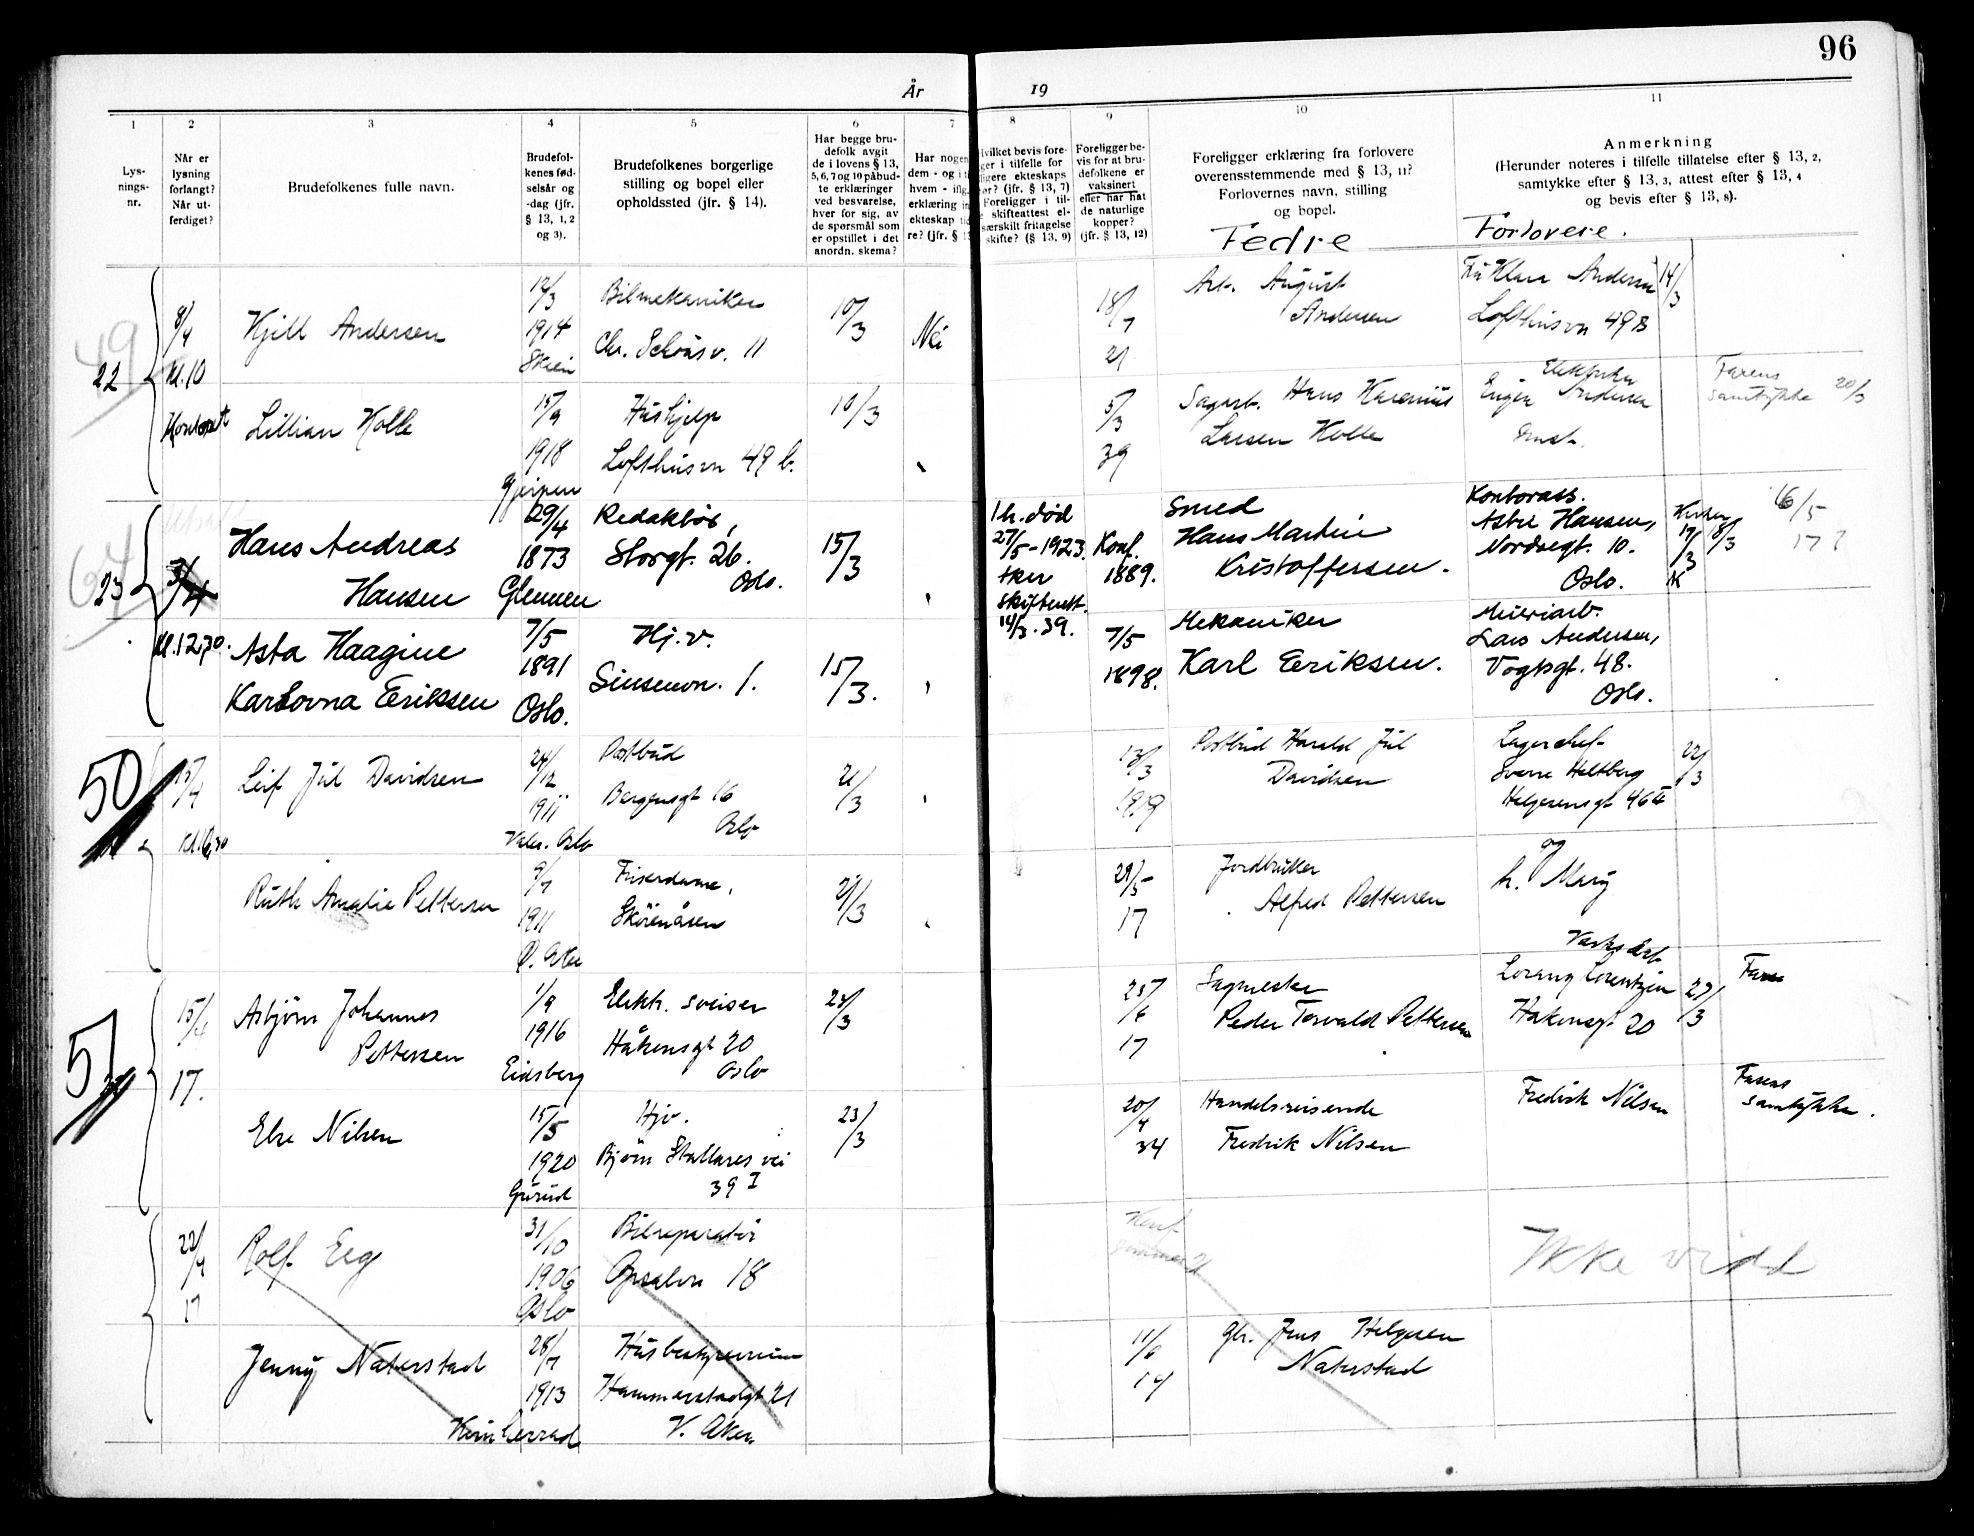 96
År 19
1 2 3 4 5 6 7 8 9 10 11
Lys-
nings-
nr.
Når er
lysning
forlangt?
Når ut-
ferdiget?
Brudefolkenes fulle navn.
Brudefol-
kenes fød-
selsår og
-dag (jfr.
§ 13, 1, 2
og 3).
Brudefolkenes borgerlige
stilling og bopel eller
opholdssted (jfr. § 14).
Har begge bru-
defolk avgit
de i lovens § 13,
5, 6, 7 og 10 påbud-
te erklæringer
ved besvarelse,
hver for sig, av
de spørsmål som
er opstillet i det
anordn. skema?
Har nogen
dem - og i ti
hvem - iflg.
erklæring in
ekteskap tid
re? (jfr. § 13
Hvilket bevis fore-
ger i tilfelle for
ligere ekteskaps
ør? (jfr. § 13, 7)
Foreligger i til-
e skifteattest el-
særskilt fritagelse
skifte? (§ 13, 9)
Foreligger be-
vis for at bru-
defolkene er
vaksinert
eller har hat
de naturlige
kopper?
(jfr. § 13, 12)
Foreligger erklæring fra forlovere
overensstemmende med § 13, 11?
Forlovernes navn, stilling
og bopel.
Fedre
Anmerkning
(Herunder noteres i tilfelle tillatelse efter § 13, 2,
samtykke efter § 13, 3, attest efter § 13, 4
og bevis efter § 13, 8).
Forlovere.
49
22
8/4
Kl. 10
Kontoret
Kjell Andersen
1914
Skien
Bilmekaniker
Chr. Schous v. 11
10/3
Nei
18/7
21
Arb. August
Andersen
Fru Klara Andersen
Lofthusvn 49B
14/3
Lillian Holle
15/9
1918
Gjerpen
Hushjelp
Lofthusvn 49 b.
10/3
5/3
39
Sagarb. Hans
Larsen Holle
Elektriker
Andersen
Farens
samtykke
20/3
64
23
Kl. 12,30.
Hans Andreas
Hansen
29/4
1873
Glemmen
Redaktør,
Storgt. 26.
Oslo.
15/3
1 h. død
27/5-1923.
skifteatt.
14/3.39.
Konf.
1889.
Smed
Hans Martin
Kristoffersen.
Kontorass.
Hansen,
Nordregt. 10.
Oslo.
17/3
18/3
16/5
17?
Asta Haagine
Karlovna Eriksen
7/5
1891
Oslo.
Hj.v.
Sinsenvn. 1.
15/3.
7/5
1898.
Mekaniker
Karl Eriksen.
Meieriarb.
Lars Andersen,
Vogtsgt. 48.
Oslo.
50
Leif Jul Davidsen
24/12
1911
Oslo
Postbud
Bergensgt 16
Oslo
21/3
13/3
1919
Postbud Harald Jul
Davidsen
Lagerchef
Sverre Heltberg
Helgesensgt 46
22/3
Ruth Amalie Pettersen
9/7
1911
Ø. Aker
Friserdame,
Skøienåsen
21/3
29/5
17
Jordbruker
Alfred Pettersen
og
h. Mary
51
15/4
17.
Asbjørn Johannes
Pettersen
1/9
1916
Eidsberg
Elektr. sveiser
Håkonsgt 20
Oslo
23/3
25/6
17
Sagmester
Peder Torvald Pettersen
Lorang Lorentzen
Håkonsgt 20
27/3
Else Nilsen
15/5
1920
Grorud
Hjv.
Bjørn Stallares vei
39 I
23/3
20/4
34
Handelsreisende
Fredrik Nilsen
Fredrik Nilsen
Farens
samtykke.
22/4
17
Rolf Eeg
31/10
1906
Oslo
Bilreparatør
Opsalvn 18
Konf.
Ikke viet
Jenny Naterstad
28/7
1913
Kvinherrad
Husbestyrerinne
Hammerstadgt 21
V. Aker.
11/6
14
Gbr. Jens Helgesen
Naterstad